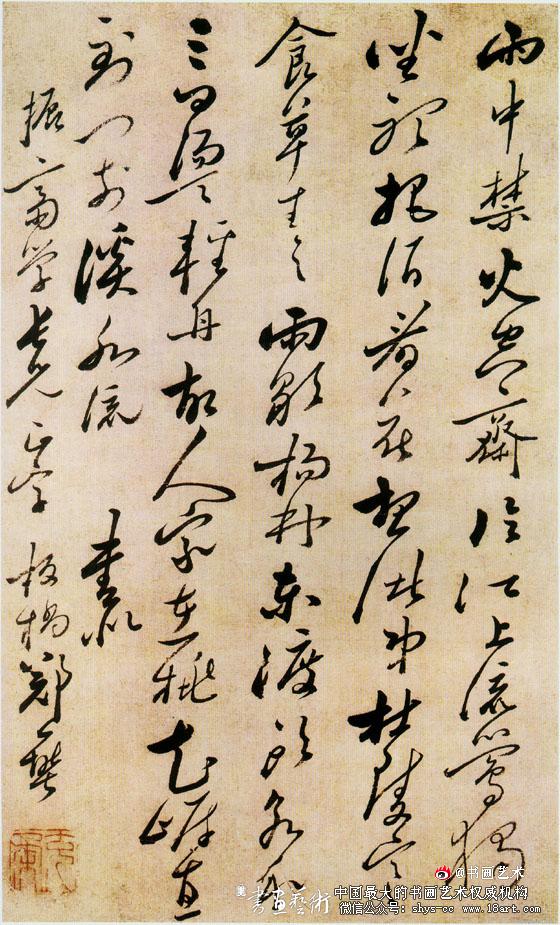 雨中禁火空齋冷江上流鶯獨
坐聽把酒看花想諸弟杜陵寒
食草青青雨歇楊林東渡頭永和
三日蕩輕舟故人家在桃花岸直
到門前溪水流 書似
振齋學老兄正字 板橋鄭燮
@书画艺术
書畫藝術
中国最大的书画艺术权威机构
微信公众号:shys-cc www.18art.com